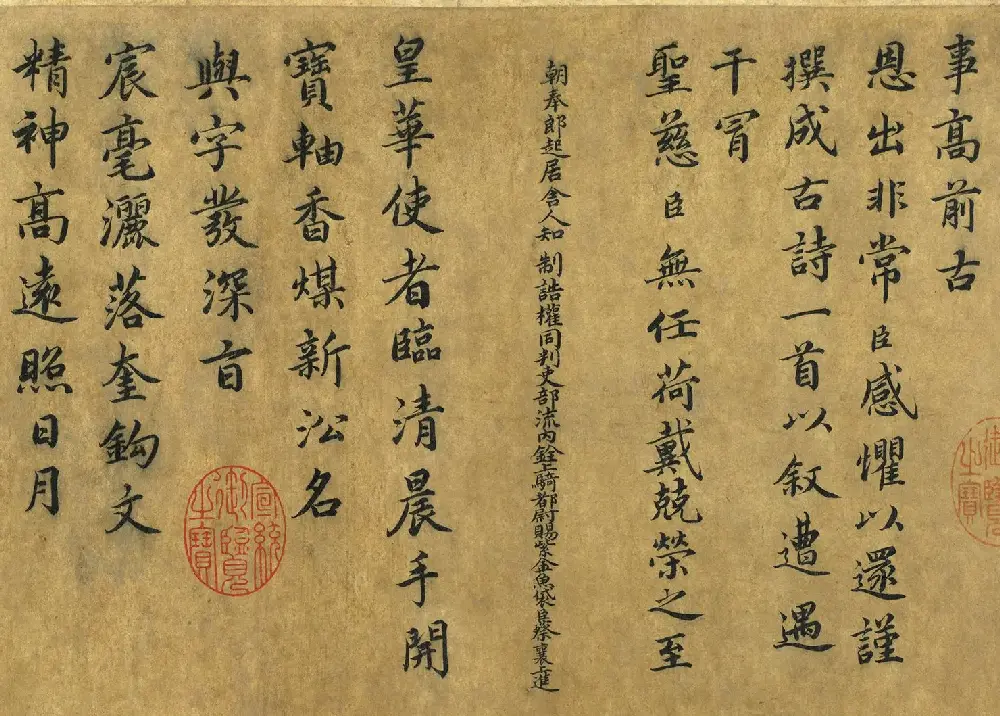 事高前古
恩出非常臣感懼以還謹
撰成古詩一首以叙遭遇
干冒
聖慈臣無任荷戴兢榮之至
朝奉郎起居舍人知制誥權同判吏部流內銓上騎都尉賜紫金魚袋臣蔡襄上進
皇華使者臨清晨手開
寶軸香煤新沿名
與字發深旨
宸毫灑落奎鈎文
精神高遠照日月
宣統御覽之寶
御覽之寶